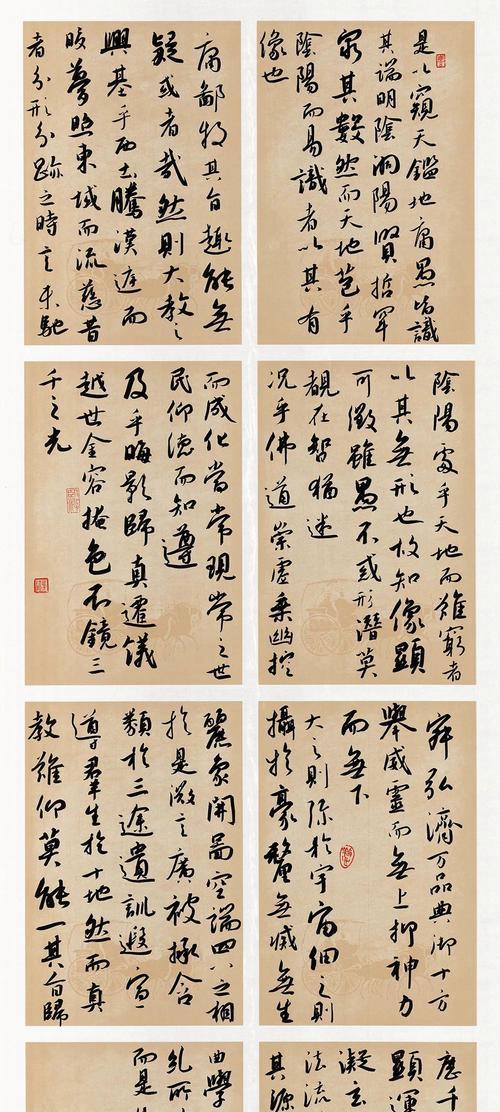 是以窺天鑑地庸愚皆識
其端明陰洞陽賢哲罕
窮其數然而天地苞乎
陰陽而易識者以其有
像也
陰陽處乎天地而難窮者
以其無形也故知像顯
可徵雖愚不惑形潛莫
覩在智猶迷
況乎佛道崇虛乘幽控
寂弘濟万品典御十方
舉威靈而無上抑神力
而無下
大之則弥於宇宙細之則
攝於豪釐無滅無生
歷千
顯運
凝玄
法流
其源
庸鄙投其旨趣能無
疑或者哉然則大教之
興基乎西土騰漢庭而
皎夢照東域而流慈昔
者分形分跡之時言未馳
而成化當常現常之世
民仰德而知遵
及乎晦影歸真遷儀
越世金容掩色不鏡三
千之光
麗象開圖空端四八之相
於是微言廣被拯含
類於三途遺訓遐宣
導群生於十地然而真
教難仰莫能一其旨歸
曲學
糺所
而是